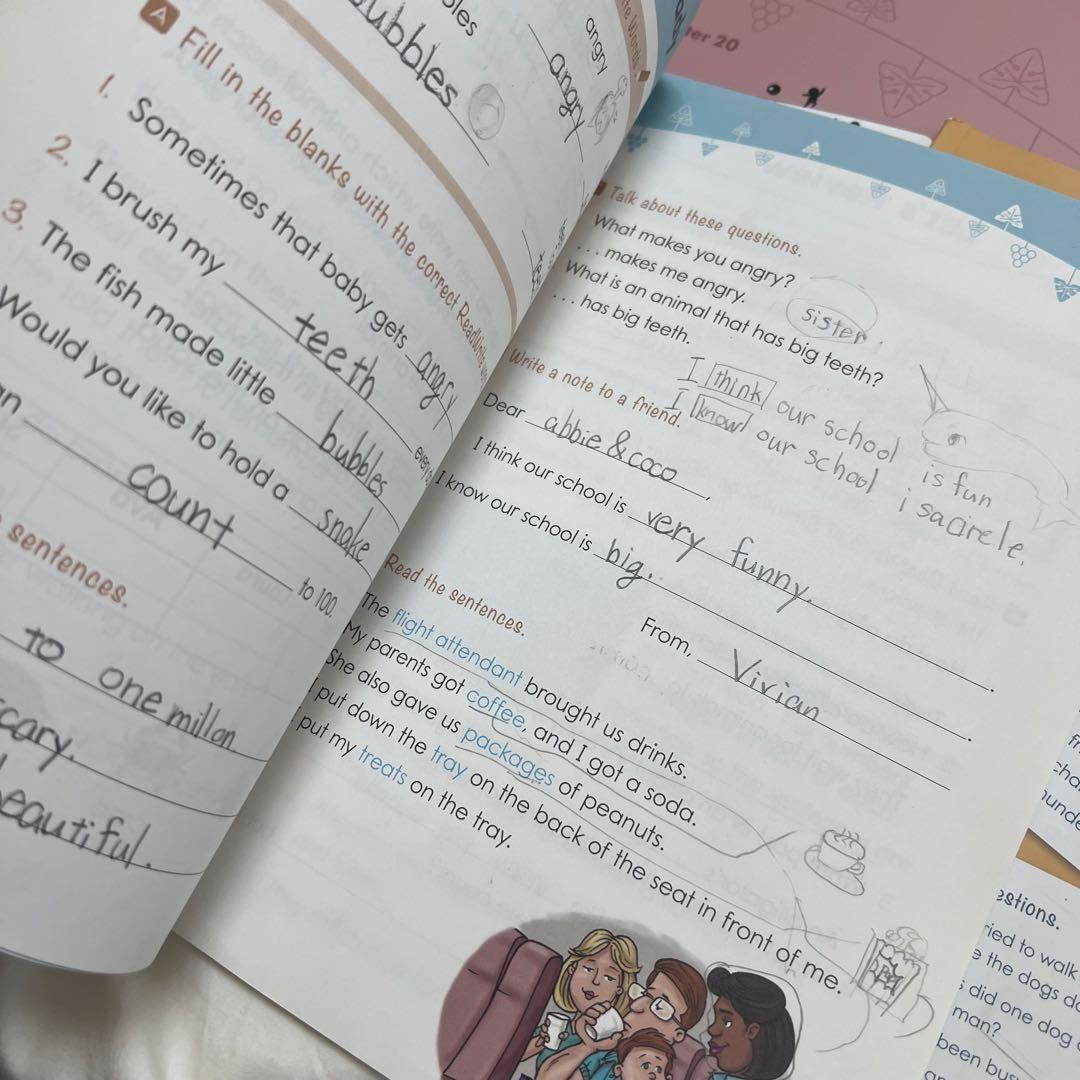 bubbles
angry
angry
A Fill in the blanks with the correct ReadWrite
1. Sometimes that baby gets angry
2. I brush my teeth every
3. The fish made little bubbles
Would you like to hold a snake
count to 100.
sentences.
to one millon
scary.
beautiful.
ter 20
Talk about these questions.
What makes you angry?
. . . makes me angry.
sister.
What is an animal that has big teeth?
. . . has big teeth.
I think our school is fun
I know our school i sacircle.
Write a note to a friend.
Dear abbie & coco,
I think our school is very funny.
I know our school is big.
From, Vivian
Read the sentences.
The flight attendant brought us drinks.
My parents got coffee, and I got a soda.
She also gave us packages of peanuts.
I put down the tray on the back of the seat in front of me.
I put my treats on the tray.
estions.
ried to walk
e the dogs
did one dog
man?
been